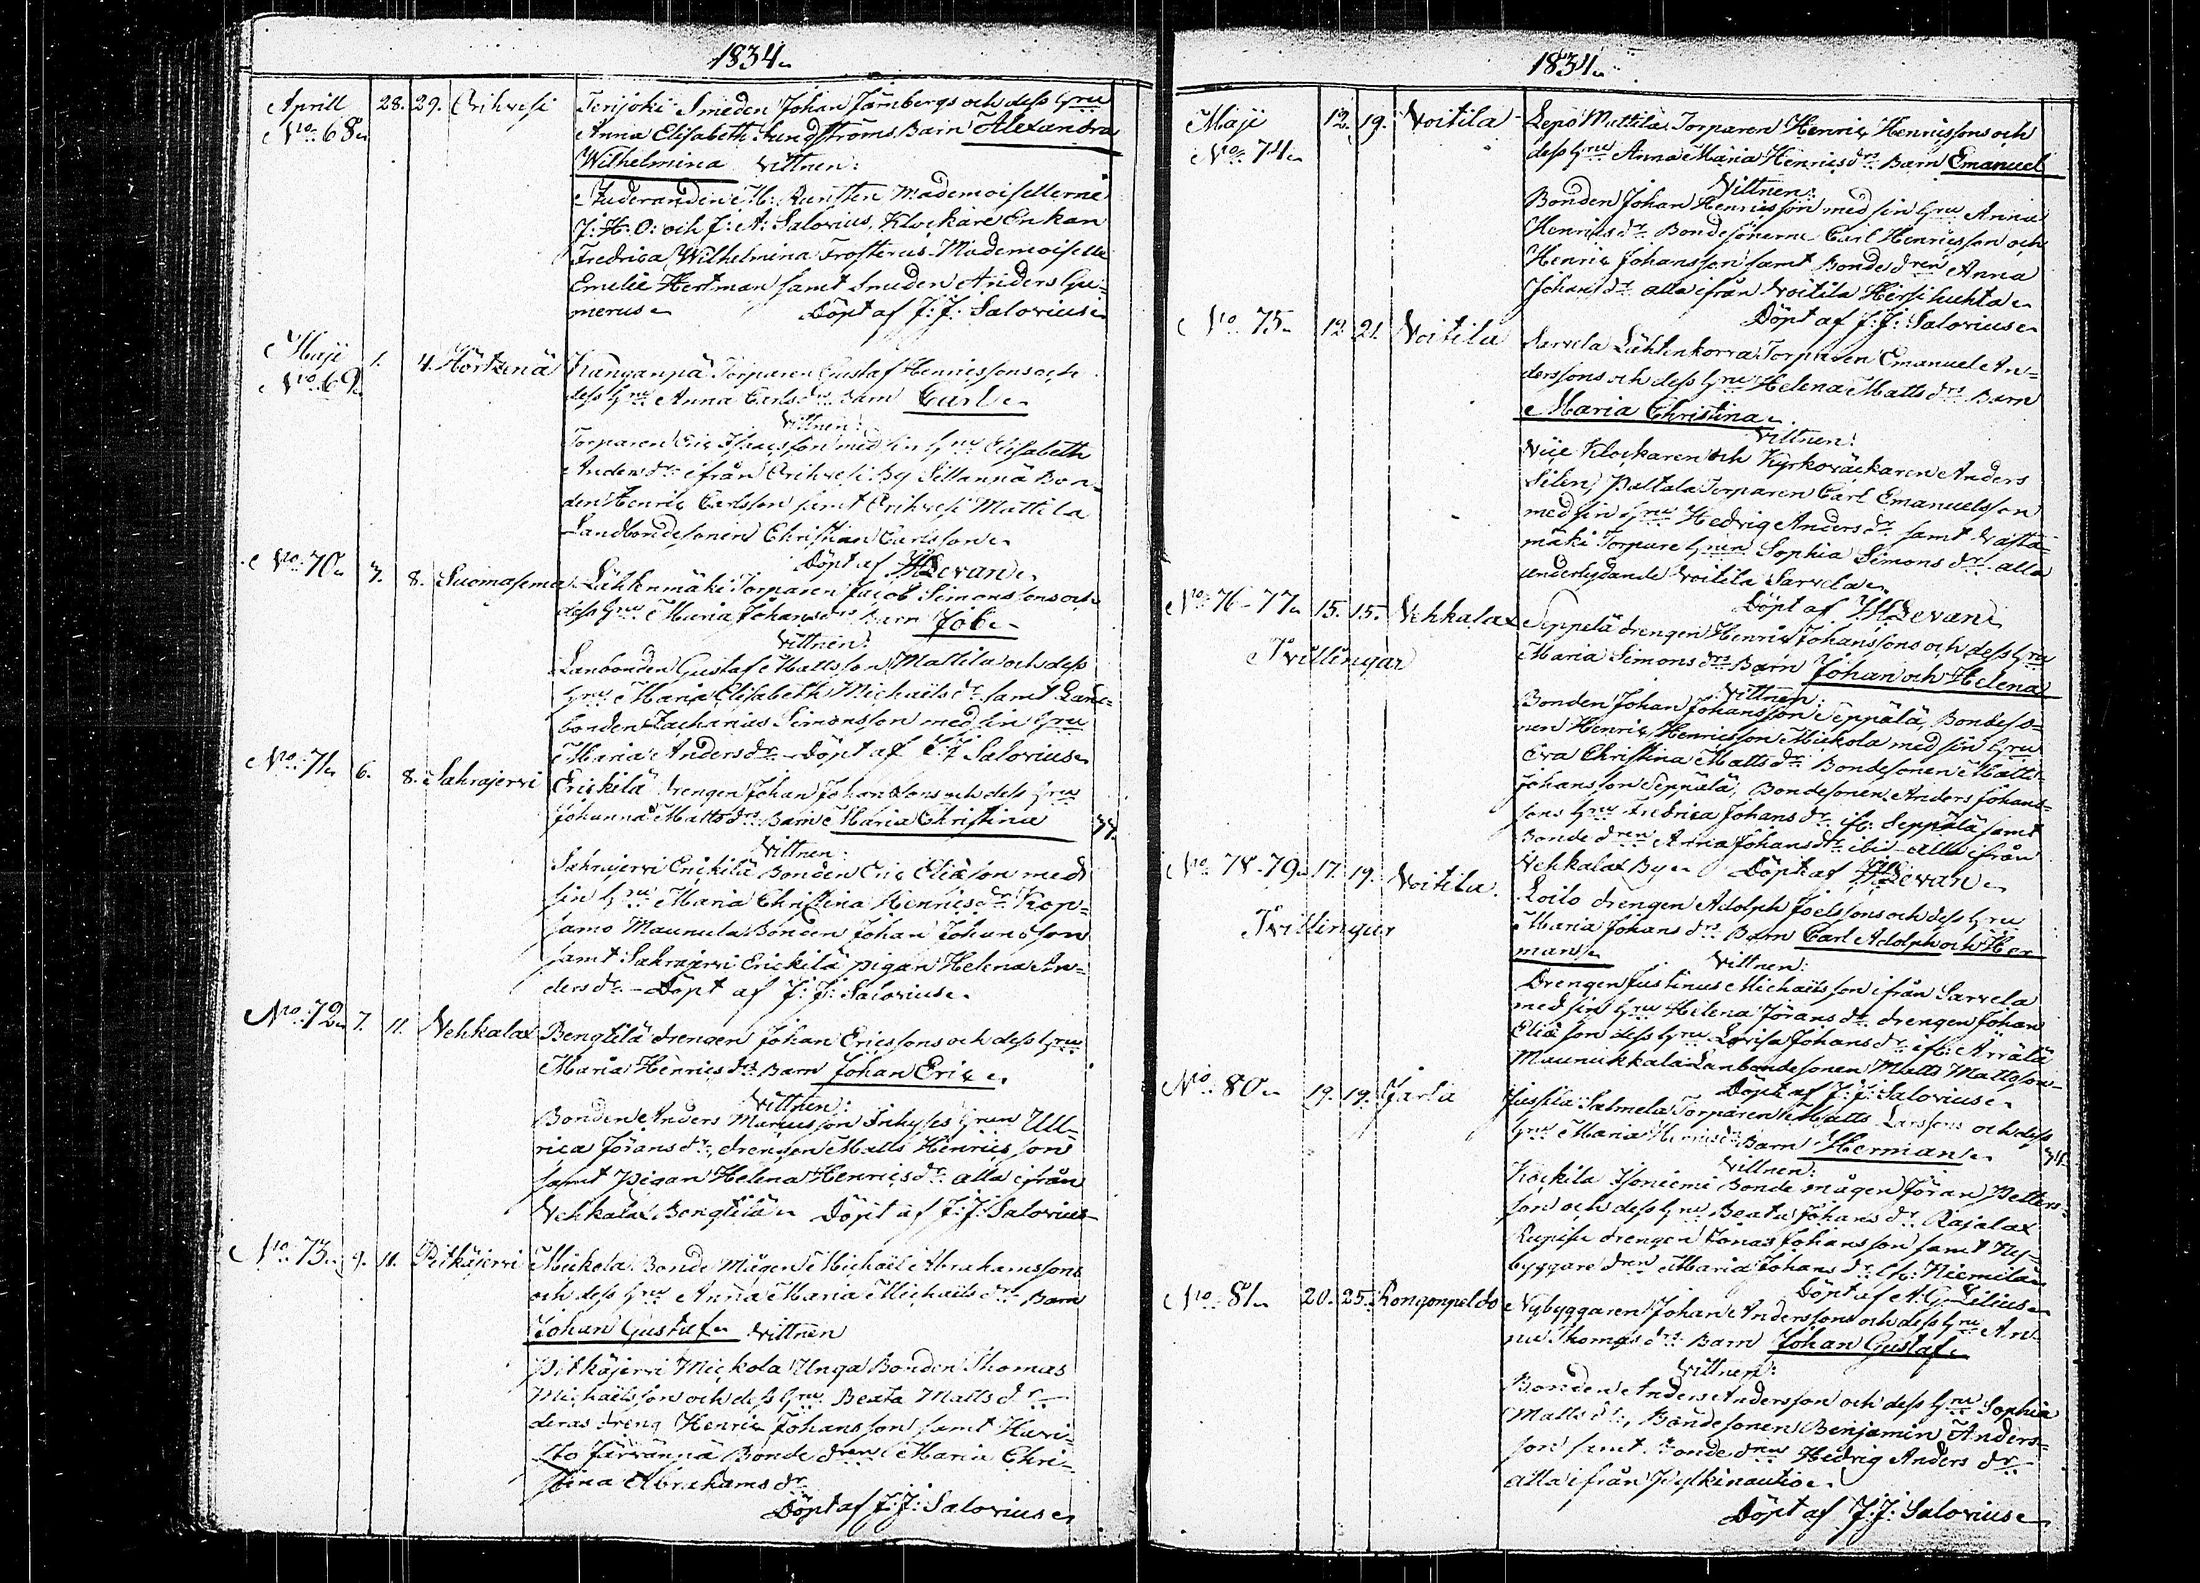 1834.
Aprill 28. 29. Orihvesi Terijoki Smeden Johan Järnbergs och dess Hru
No 68. Anna Elisabeth Lundströms Barn Alexandra
Wilhelmina Vittnen:
Studeranden H: Runsten Mademoisellerne
J: H: O: och J: A: Salovius, Klockare Enkan
Fredrica Wilhelmina Frosterus Mademoiselle
Emelie Hertman samt Smeden Anders Gu-
merus Döpt af J: J: Salovius
Maji 1. 4. Hörtsänä Kanganpä Torparen Gustaf Henricssons och
No 69. dess Hru Anna Carls dr Barn Carl
Vittnen:
Torparen Eric Isaacsson med sin Hru Elisabeth
Anders dr ifrån Orihvesi By Sillannä Bon-
den Henric Carlsson samt Orihvesi Mattila
Landbondesonen Christian Carlsson
Döpt af Devan
No 70. 7. 8. Suomasema Lähtenmäki Torparen Jacob Simonssons och
dess Hru Maria Johans drs Barn Job
Vittnen:
Lanbonden Gustaf Mattsson Mattila och dess
Hru Maria Elisabeth Michaëls dr samt Lan-
bonden Zacharias Simonsson med sin Hru
Maria Anders dr Döpt af J: J: Salovius
No 71. 6. 8. Sahrajervi Erickilä drengen Johan Johanssons och dess Hru
Johanna Matts drs Barn Maria Christina 77.
Vittnen:
Sahrajervi Erickilä Bonden Eric Eliäson med
sin Hru Maria Christina Henrics dr Kop-
samo Maunula Bonden Johan Johansson
samt Sahrajervi Erickilä pigan Helena An-
ders dr Döpt af J: J: Salovius
No 72. 7. 11. Vehkalax Bengtilä drengen Johan Ericssons och dess Hru
Maria Henrics drs Barn Johan Eric
Vittnen:
Bonden Anders Maricsson Inhyses Hrun Ull-
rica Jörans dr, drengen Matts Henricsson
samt Pigan Helena Henrics dr alla ifrån
Vehkalax Bengtilä Döpt af J: J: Salovius
No 73. 9. 11. Pitkäjervi Mickola Bonde Mågen Michaël Abrahamssons
och dess Hru Anna Maria Michaëls drs Barn
Johan Gustaf Vittnen
Pitkäjervi Mickola Unga Bonden Thomas
Michaëlsson och dess Hru Beata Matts dr
deras dreng Henric Johansson samt Havi-
sto Järvänpä Bonde dren Maria Chri-
stina Abrahams dr
Döpt af J: J: Salovius
1834.
Maji 12. 19. Voitila Lepo Mattila Torparen Henric Henricssons och
No 74. dess Hru Anna Maria Henrics drs Barn Emanuel
Vittnen:
Bonden Johan Henricsson med sin Hru Anna
Henrics dr Bondesönerne Carl Henricsson och
Henric Johansson samt Bonde dren Anna
Johans dr alla ifrån Voitila Hirsihuhta
Döpt af J: J: Salovius
No 75. 12. 21. Voitila Sarvela Lähtenkorva Torparen Emanuel An-
derssons och dess Hru Helena Matts drs Barn
Maria Christina
Vittnen:
Vice Klockaren och Kyrkoväckaren Anders
Silen, Pattala Torparen Carl Emanuelsson
med sin Hru Hedvig Anders dr samt Vasta-
mäki Torpare Hrun Sophia Simons dr alla
underlydande Voitila Sarvela
Döpt af Devan
No 76-77. 15. 15. Vehkalax Seppelä drengen Henric Johanssons och dess Hru
Tvillingar Maria Simons drs Barn Johan och Helena
Vittnen:
Bonden Johan Johansson Seppälä, Bondeso-
nen Henric Henricsson Mickola med sin Hru
Eva Christina Matts dr Bondesonen Matts
Johansson Seppälä, Bondesonen Anders Johans-
sons Hru Fredrica Johans dr ifr: Seppälä samt
Bonde dren Anna Johans dr ibid alla ifrån
Vehkalax By Döpt af Devan
No 78-79. 17. 19. Voitila Loilo drengen Adolph Joelssons och dess Hru
Tvillingar Maria Johans drs Barn Carl Adolph och Her-
man
Vittnen:
Drengen Justinus Michaëlsson ifrån Sarvela
med sin Hru Helena Jörans dr drengen Johan
Eliäson dess Hru Lovisa Johans dr ifr: Arrälä
Maunukkala Lanbondesonen Matts Mattsson
Döpt af J: J: Salovius
No 80. 19. 19. Jarla Jussila Salmela Torparen Matts Larssons och dess
Hru Maria Henrics drs Barn Herman 74.
Vittnen:
Kockila Isoniemi Bonde mågen Jöran Petters-
son och dess Hru Beata Johans dr Rajalax
Rupisu drengen Jonas Johansson samt Ny-
byggare dren Maria Johans dr Niemilä
Döpt af A: G: Lilius
No 81. 20. 25. Rongonpeldo Nybyggaren Johan Anderssons och dess Hru An-
na Thomas drs Barn Johan Gustaf
Vittnen:
Bonden Anders Andersson och dess Hru Sophia
Matts dr, Bondesonen Benjamin Anders-
son samt Bonde dren Hedvig Anders dr
alla ifrån Pylkinautio
Döpt af J: J: Salovius